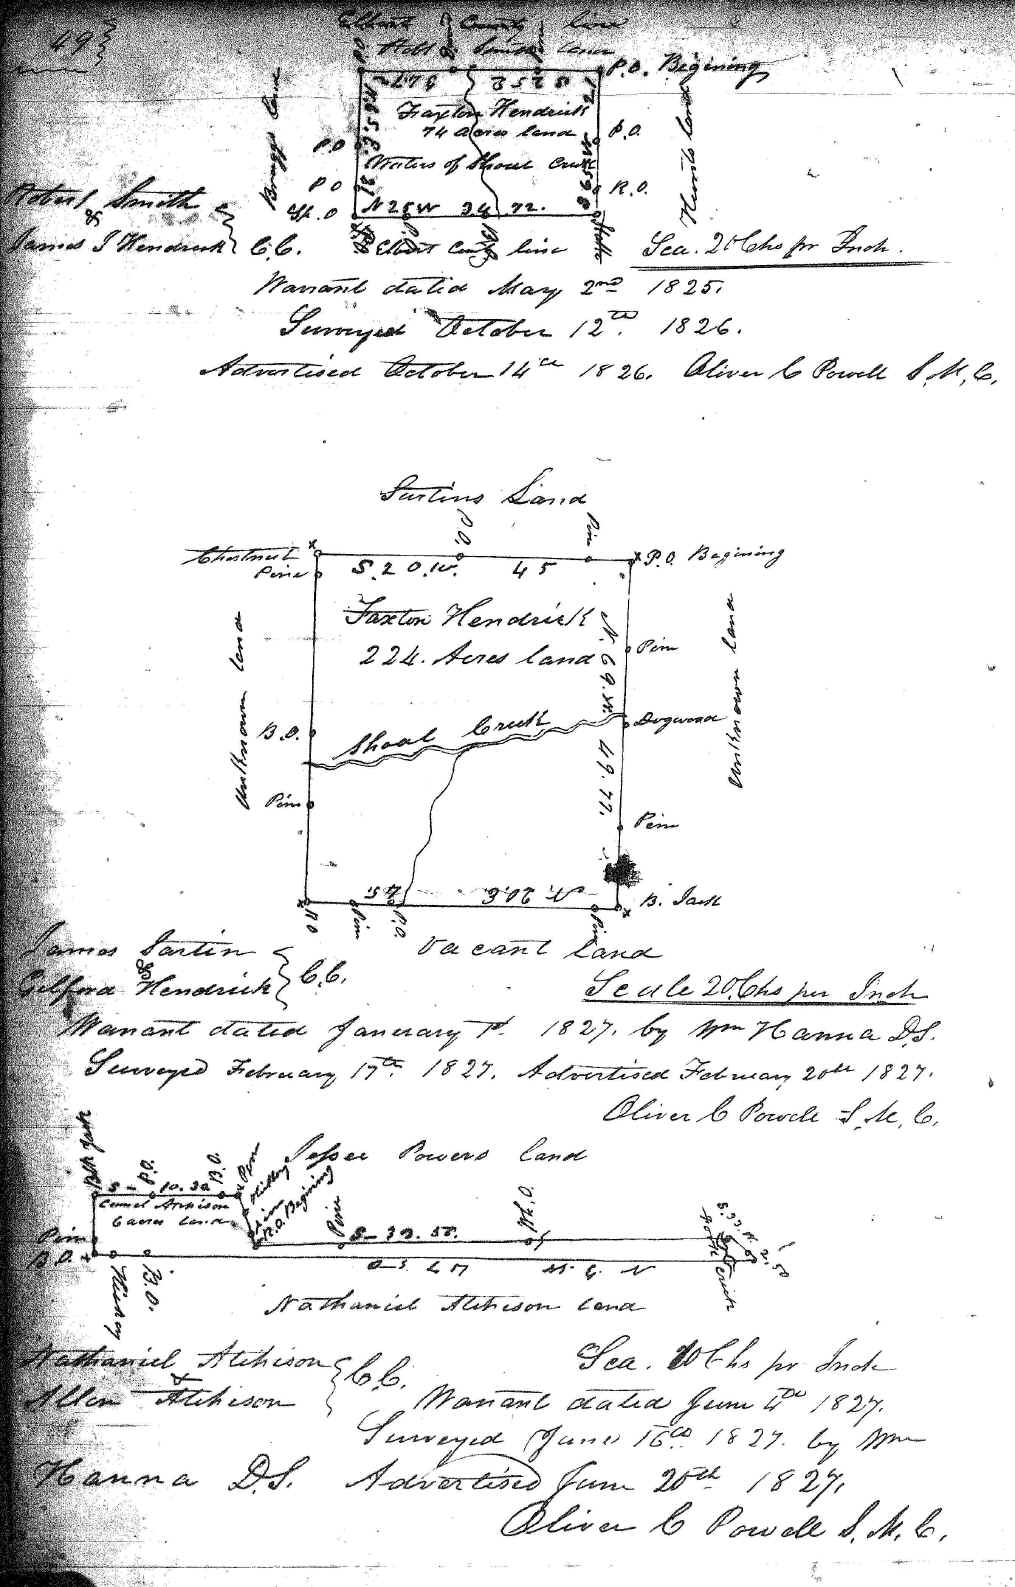 49
Elbert County line
P.O. Begining
Faxton Hendrick
74 Acres land
Waters of Shoal Creek
P.O.
P.O.
P.O.
R.O.
N 25 W 34 72.
Elbert County line
Robert Smith
&
James S Hendrick } C.C.
Sca. 20 Chs pr Inch.
Warrant dated May 2nd 1825.
Surveyed October 12th. 1826.
Advertised October 14th 1826. Oliver C Powell S, M, C,
Sartins Land
P.O.
Pine
Chestnut
Pine
S. 20. W. 45
P.O. Begining
Faxton Hendrick
224. Acres land
N. 69. W. 49. 77.
Unknown land
Unknown land
Pine
B.O.
Shoal Creek
Dogwood
Pine
Pine
N. 20. E. 45
B. Jack
R O
Pine
P.O.
Pine
Vacant land
James Sartin
&
Gilford Hendrick } C.C.
Scale 20. Chs per Inch
Warrant dated Janerary 1st. 1827. by Wm Hanna D.S.
Surveyed February 17th. 1827. Advertised February 20th 1827.
Oliver C Powell S, M, C,
Blk Jack
P.O.
B.O.
Pine
Jessee Powers land
S- 10. 30
Atchison
6 acres land
Hickory
R.O. Begining
Pine
S- 39. 50.
W.O.
Pine
B.O.
Hickory
B.O.
Nathaniel Atchison land
Nathaniel Atchison
&
Allen Atchison } C.C.
Sca. 10 Chs pr Inch
Warrant dated June 4th 1827.
Surveyed June 16th. 1827. by Wm
Hanna D.S. Advertised June 20th 1827.
Oliver C Powell S. M. C.